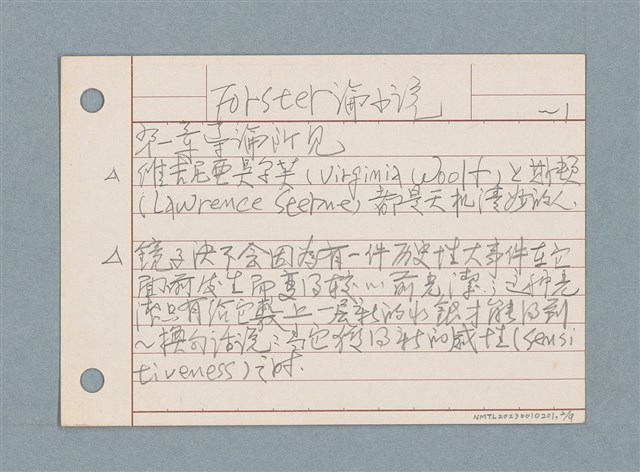 Forster論小说
~1
第一章 导論所见
△ 維吉尼亞吳尔芙(Virginia Woolf)と斯頓
(Lawrence Sterne)都是天机清妙的人.
△ 鏡子决不会因為有一件历史性大事件在它
面前发生而变得較以前光潔;这种光
潔只有给它敷上一层新的水銀才能得到
~換句话说:当它獲得新的感性(Sensi
tiveness)之时.
NMTL20230010201